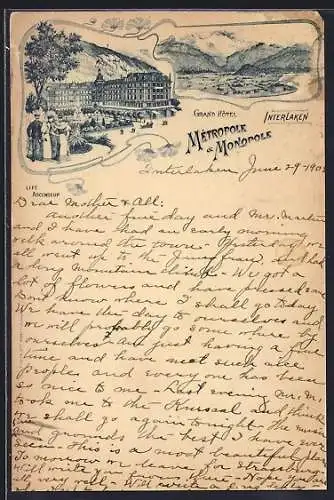 GRAND HÔTEL
MÉTROPOLE
& MONOPOLE
INTERLAKEN
LIFT
ASCENSEUR
Interlaken June 29-190
Dear Mother & All:
Another fine day and Mr. Martin
and I have had an early morning
walk around the town. Yesterday we
all went up to the Jung Frau, and had
a long mountain climb. We got a
lot of flowers and have pressed em
Dont know where I shall go today
We have the day to ourselves and
we will probably go some where by
ourselves. Am just having a fine
time and have met such nice
People and every one has been
so nice to me. Last evening Mr. M.
took me to the Kursaal and think
we shall go again tonight. The music
and grounds the best I have ever
seen. This is a most beautiful place
To morrow we leave for Strassburg
Will write you from there. Hope
very well. Will write